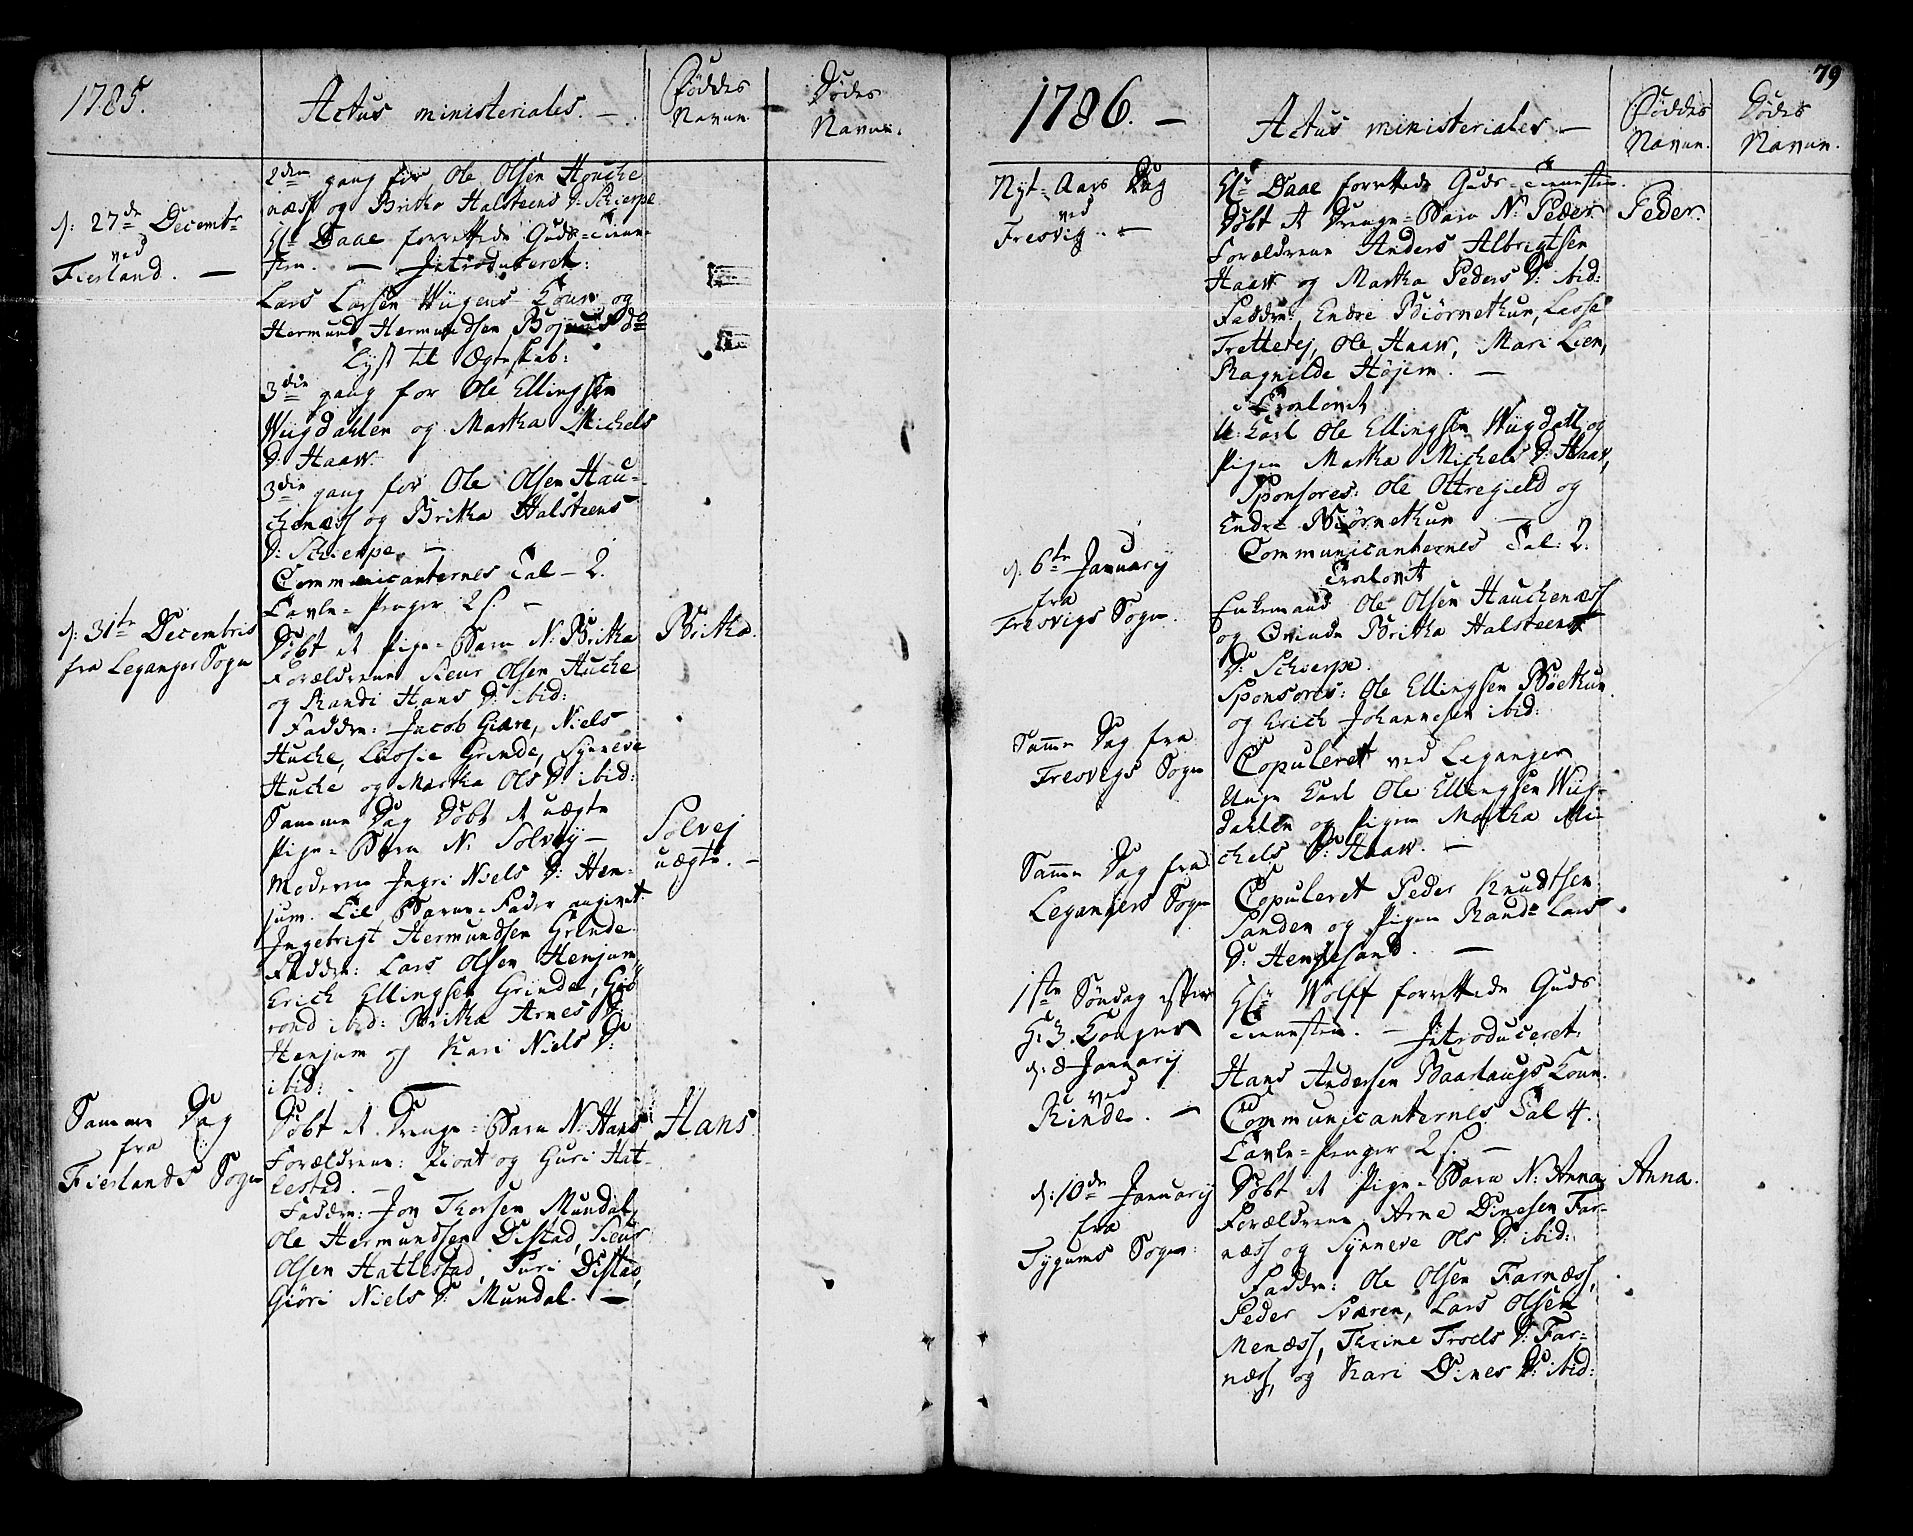 1785.
Actus ministeriales. —
Föddes
Navne.
Dödes
Navne.
2den gang for Ole Olsen Houche
næss og Britha Halsteens D: Schierpe
d: 27de Decembr
ved
Fierland. —
Hr Daae forrettede Guds-Tienne-
sten. — Introduceret:
Lars Larsen Wiigens Kone og
Hermund Hermundsen Bøjums do
Lyst til Ægteskab:
3die gang for Ole Ellingsen
Wiigdahlen og Martha Michels
D: Haaw.
3die gang for Ole Olsen Hau-
chenæss og Britha Halsteens
D: Schierpe. —
Communicanternes Tal – 2.
Tavle-Penger 2 s. —
d: 31te Decembris
fra Leganger Sogn
Döbt et Pige-Barn N: Britha
Forældrene Sieur Olsen Huche
og Randi Hans D: ibid:
Faddre: Jacob Giære, Niels
Huche, Lassie Grinde, Synneve
Huche og Martha Ols D: ibid:
Britha.
Samme Dag Döbt et uægte
Pige-Barn N: Solvej —
Moderen Ingri Niels D: Hen-
jum. Til Barne-Fader angivet
Ingebrigt Hermundsen Grinde.
Faddre: Lars Olsen Henjum,
Erich Ellingsen Grinde, Giö
rond ibid: Britha Arnes D:
Henjum og Kari Niels D:
ibid:
Solvej
uægte. —
Samme Dag
fra
Fierlands Sogn
Döbt et Drenge-Barn N: Hans
Forældrene: Sioat og Guri Hat-
lestad. —
Faddre: Jon Thorsen Mundal,
Ole Hermundsen Distad, Sieur
Olsen Hatlestad, Turi Distad,
Giöri Niels D: Mundal. —
Hans
79
1786. —
Actus ministeriales —
Föddes
Navne.
Dödes
Navne.
Nyt-Aars Dag
ved
Fresvig. —
Hr Daae forrettede Guds-Tiennesten.
Döbt et Drenge-Barn N: Peder
Forældrene Anders Albrigtsen
Haaw og Martha Peders D: ibid:
Faddre: Endre Biörnethun, Lasse
Trettetej, Ole Haaw, Mari Lien,
Ragnilde Höjem. —
Trolovet
U: Karl Ole Ellingsen Wiigdahl og
Pigen Martha Michels D: Haaw,
Sponsores: Ole Ottregield og
Endre Biörnethun —
Communicanternes Tal: 2.
Peder.
d: 6te January
fra
Fresvigs Sogn.
Trolovet
Enkemand Ole Olsen Hauchenæss
og Qvinde Britha Halsteens
D: Schierpe.
Sponsores: Ole Ellingsen Böethun
og Erich Johannesen ibid:
Samme Dag fra
Fresvigs Sogn
Copuleret ved Leganger
Unge Karl Ole Ellingsen Wiig-
dahlen og Pigen Martha Mi-
chels D: Haaw. —
Samme Dag fra
Legangers Sogn
Copuleret Peder Knudtsen
Sanden og Pigen Rande Lars
D: Hengesand. —
1ste Söndag efter
H: 3. Konger
d: 8 January
ved
Rinde. —
Hr Wolff forrettede Guds
Tiennesten. — Introduceret:
Hans Andersen Baarlaugs Kone.
Communicanternes Tal 4.
Tavle-Penger 2 s. —
d: 10de January
fra
Tygums Sogn:
Döbt et Pige-Barn N: Anna
Forældrene Arne Dinesen Far-
næss og Synneve Ols D: ibid:
Faddre: Ole Olsen Farnæss,
Peder Sværen, Lars Olsen
Menæss, Thrine Troels D: Far-
næss, og Kari Dines D: ibid:
Anna.